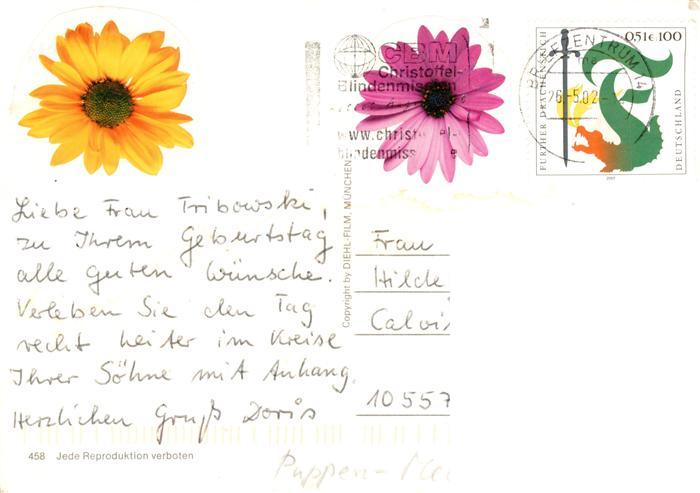 CBM
Christoffel-
Blindenmission
www.christoffel-
blindenmiss
BRIEFZENTRUM 14
26.-5.02
0,51€ 100
FURTHER DRACHENSTICH
DEUTSCHLAND
2001
Liebe Frau Tribowski,
zu Ihrem Geburtstag
alle guten Wünsche.
Verleben Sie den Tag
recht heiter im Kreise
Ihrer Söhne mit Anhang.
Herzlichen Gruß Doris
Copyright by DIEHL-FILM, MÜNCHEN
Frau
Hilde
Calvi
10557
458 Jede Reproduktion verboten
Puppen-